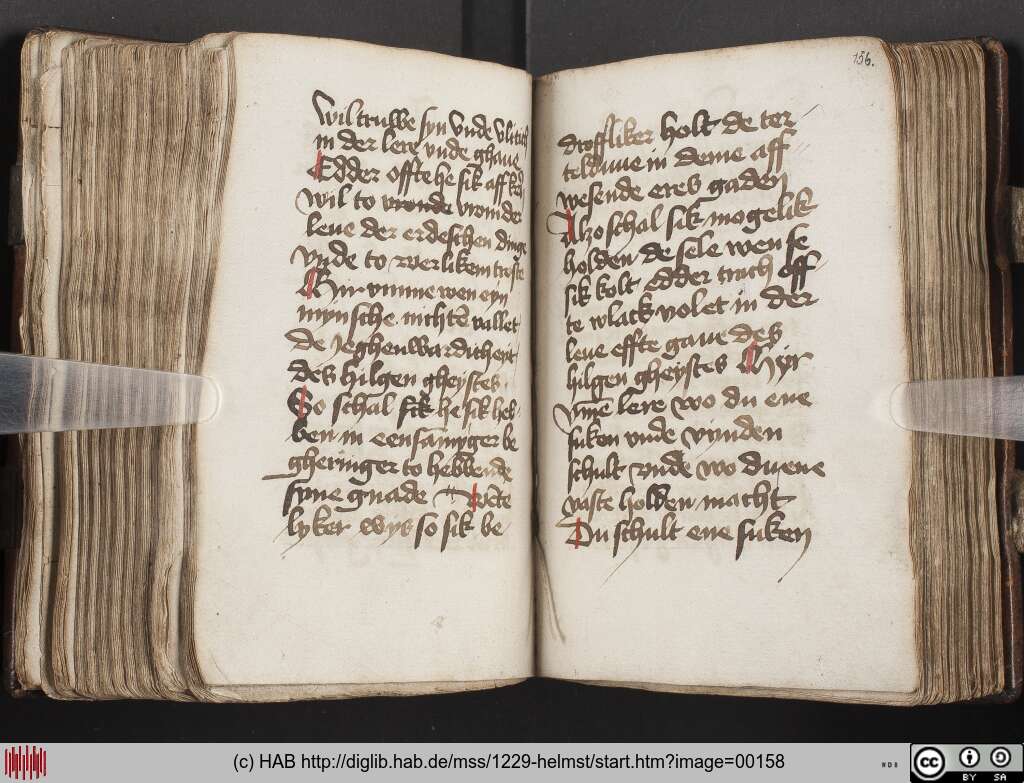 wil truwe syn Unde vlitich
in der lere unde ghaue
Edder offte he sik aff ker
wil to vronde vromder
leue der erdeschen dinge
vnde to werlikem troste
Hir vmme wen eyn
mynsche nichten vallet
de jeghenwardicheyt
des hilgen gheystes
So schal sik he sik heb
ben in eensamyger be
gheringe to hebbende
syne gnade
lyker wys so sik be
156.
droffliker holt de ter
telduue in deme aff
wesende eres gaden
Alzo schal sik mogelik
holden de sele wen se
sik kolt edder trach off
te wlack volet in der
leue effte gaue des
hilgen gheystes Hyr
vme lere wo du ene
suken vnde vinden
schult vnde wo du ene
vaste holden macht
Du schult ene suken
(c) HAB http://diglib.hab.de/mss/1229-helmst/start.htm?image=00158
WDB
cc
BY SA